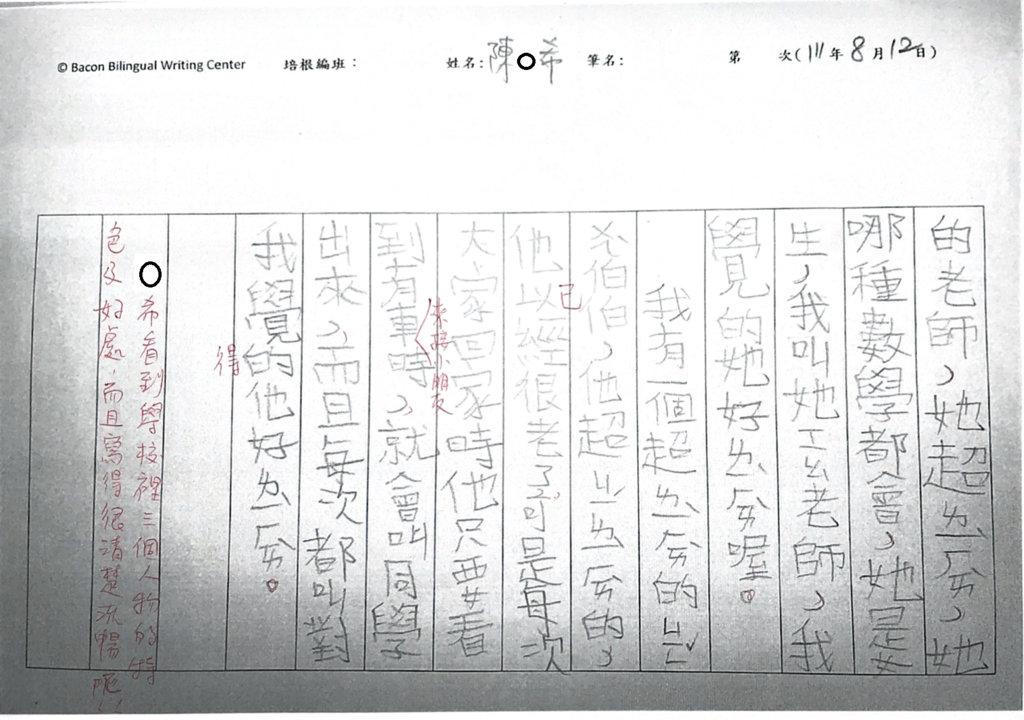 © Bacon Bilingual Writing Center 培根編班： 姓名：陳○希 筆名： 第 次(111年8月12日)
的老師，她超ㄌㄧˋㄏㄞ，她
哪種數學都會，她是女
生，我叫她ㄒㄠ老師，我
學見的她好ㄌㄧˋㄏㄞ喔。
我有一個超ㄌㄧˋㄏㄞ的
伯伯，他超ㄌㄧˋㄏㄞ的，
他以經很老了可是每次
已
大家回家時他只要看
到有車時，就會叫同學
來接小朋友
出來，而且每次都叫對
我覺的他好ㄌㄧˋㄏㄞ。
得
○希看到學校裡三個人物的特
色及好處，而且寫得很清楚流暢呢！